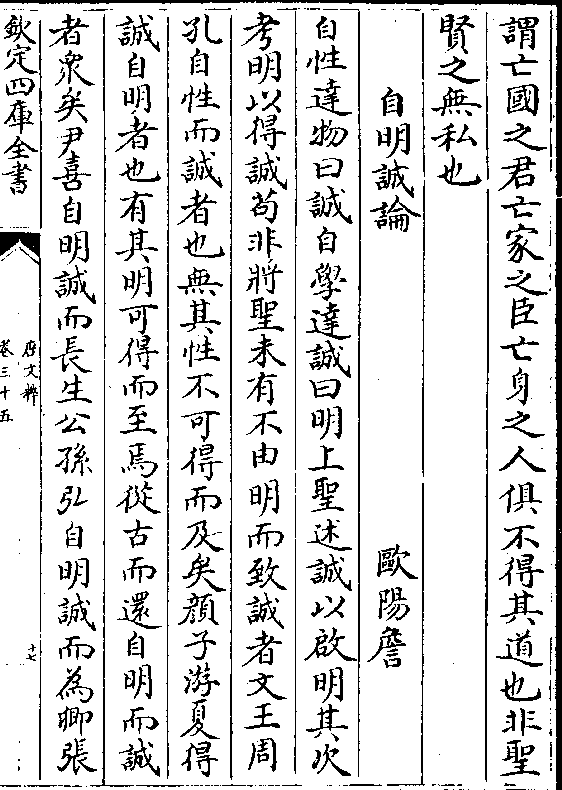 謂亡國之君亡家之臣亡身之人俱不得其道也非聖
賢之無私也
自明誠論 歐陽詹
自性達物曰誠自學達誠曰明上聖述誠以啟明其次
考明以得誠苟非將聖未有不由明而致誠者文王周
孔自性而誠者也無其性不可得而及矣顔子游夏得
誠自明者也有其明可得而至焉從古而還自明而誠
者衆矣尹喜自明誠而長生公孫弘自明誠而為卿張
欽定四庫全書
唐文粹
卷三十五
十七